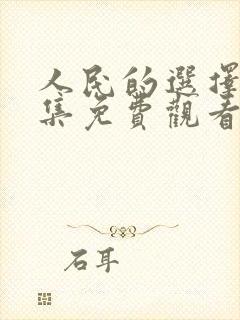 人民的選擇
集免費觀看
石耳